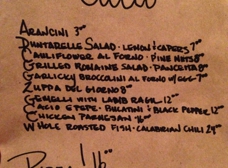 Arancini 3⁰⁰
Puntarelle Salad · Lemon & Capers 7⁰⁰
Cauliflower al Forno · Pine Nuts 8⁰⁰
Grilled Romaine Salad · Pancetta 8⁰⁰
Garlicky Broccolini al Forno w/ Egg 7⁰⁰
Zuppa del Giorno 8⁰⁰
Gemelli with Lamb Ragu 12⁰⁰
Cacio e Pepe · Bucatini & Black Pepper 12⁰⁰
Chicken Parmesan 16⁰⁰
Whole Roasted Fish · Calabrian Chili 24⁰⁰